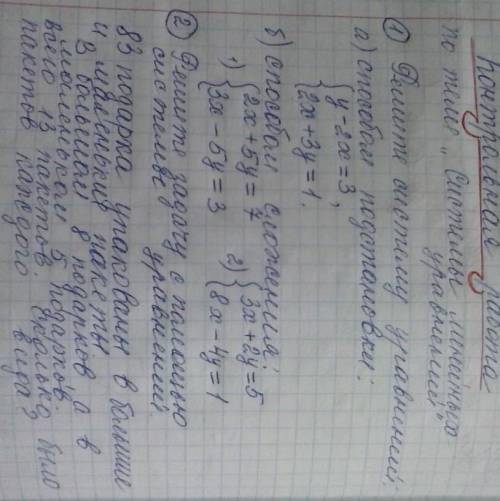 Контрольная работа
по теме „Системы линейных
уравнений"
① Решите систему уравнений:
а) способом подстановки:
{y - 2x = 3,
2x + 3y = 1.
б) способом сложения:
1) {2x + 5y = 7
3x - 5y = 3
2) {3x + 2y = 5
8x - 4y = 1
② Решите задачу с помощью
системы уравнений
83 подарка упакованы в большие
и маленькие пакеты
В большом 8 подарков, а в
маленьком 5 подарков,
всего 13 пакетов. Сколько было
пакетов каждого вида?